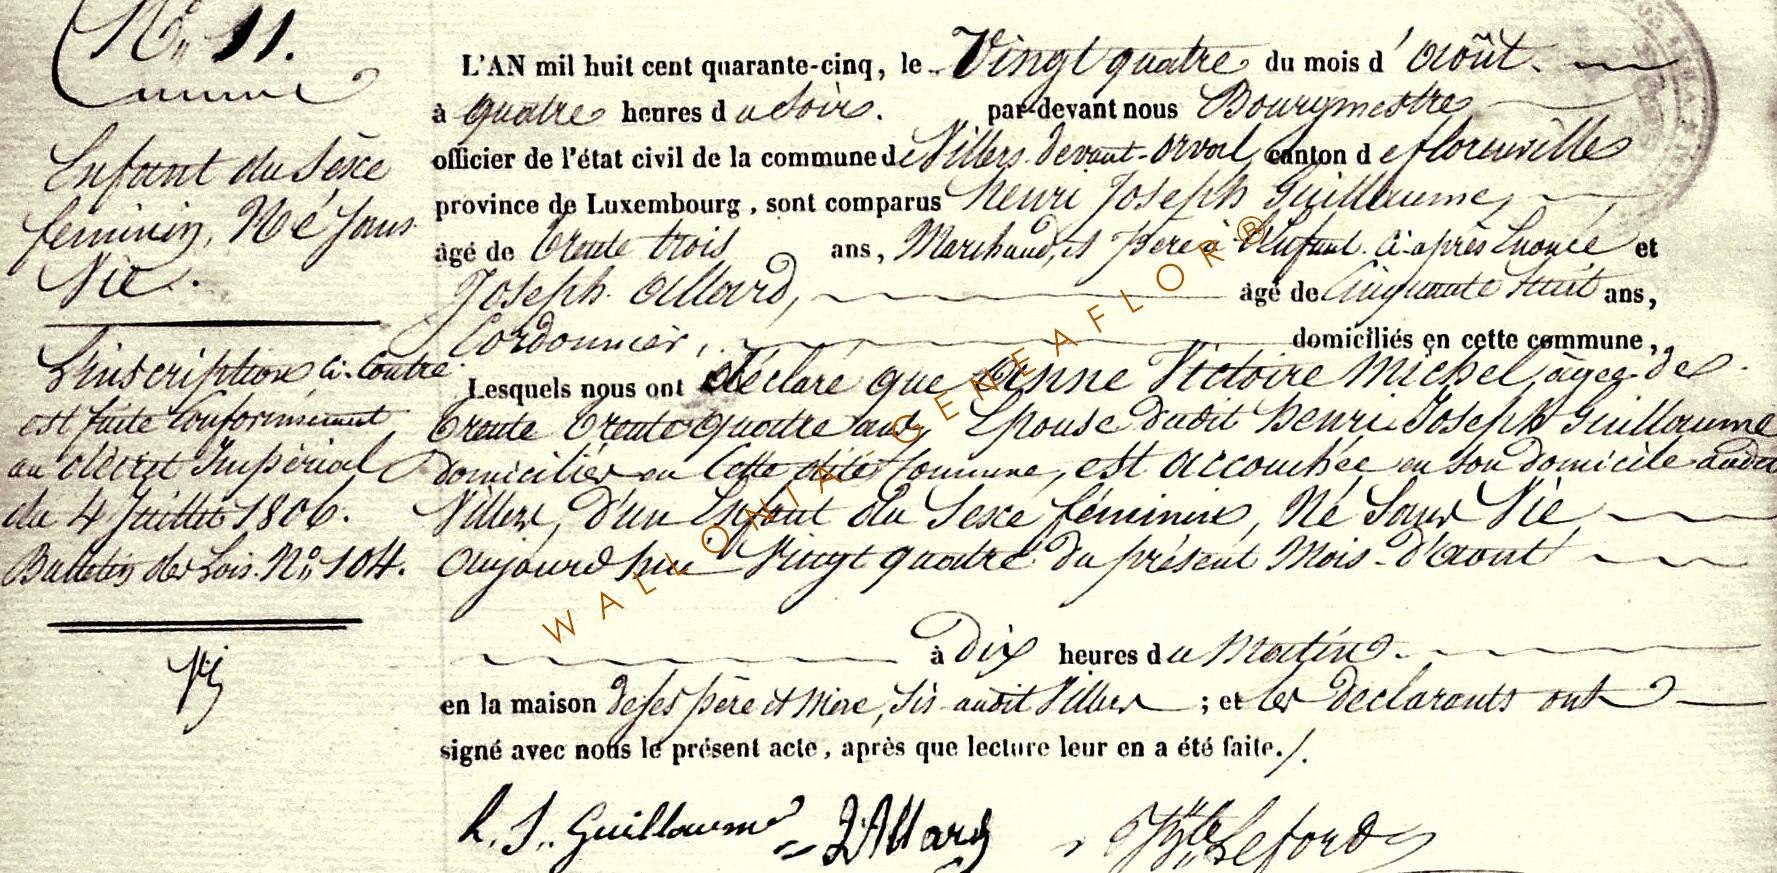 N° 11.
Enfant du Sèxe
féminin, Né Sans
Vie.
L'inscription Ci-Contre
est faite Conformément
au décret Impérial
du 4 Juillet 1806.
Bulletin des Lois N° 104.
L'AN mil huit cent quarante-cinq, le Vingt quatre du mois d'août.
à quatre heures du Soir. par-devant nous Bourgmestre
officier de l'état civil de la commune de Villers devant-orval, canton de florenville
province de Luxembourg, sont comparus henri Joseph Guillaume,
âgé de trente trois ans, Marchand, et père à l'Enfant Ci-après Enoncé et
Joseph allard, âgé de Cinquante huit ans,
Cordonnier, domiciliés en cette commune,
Lesquels nous ont déclaré que anne Victoire Michel, âgée de
trente trente quatre ans, Epouse dudit henri Joseph Guillaume
domiciliée en Cette dite Commune, est accouchée en son domicile audit
Villers, d'un Enfant du Sexe féminin, Né Sans Vie
aujourd'hui Vingt quatre du présent Mois d'aout
à Dix heures du Matin.
en la maison de ses père et Mère, Sis audit Villers ; et les déclarants ont
signé avec nous le présent acte, après que lecture leur en a été faite./.
h. J. Guillaume J Allard Leford
WALLONIA GENEAFLOR®